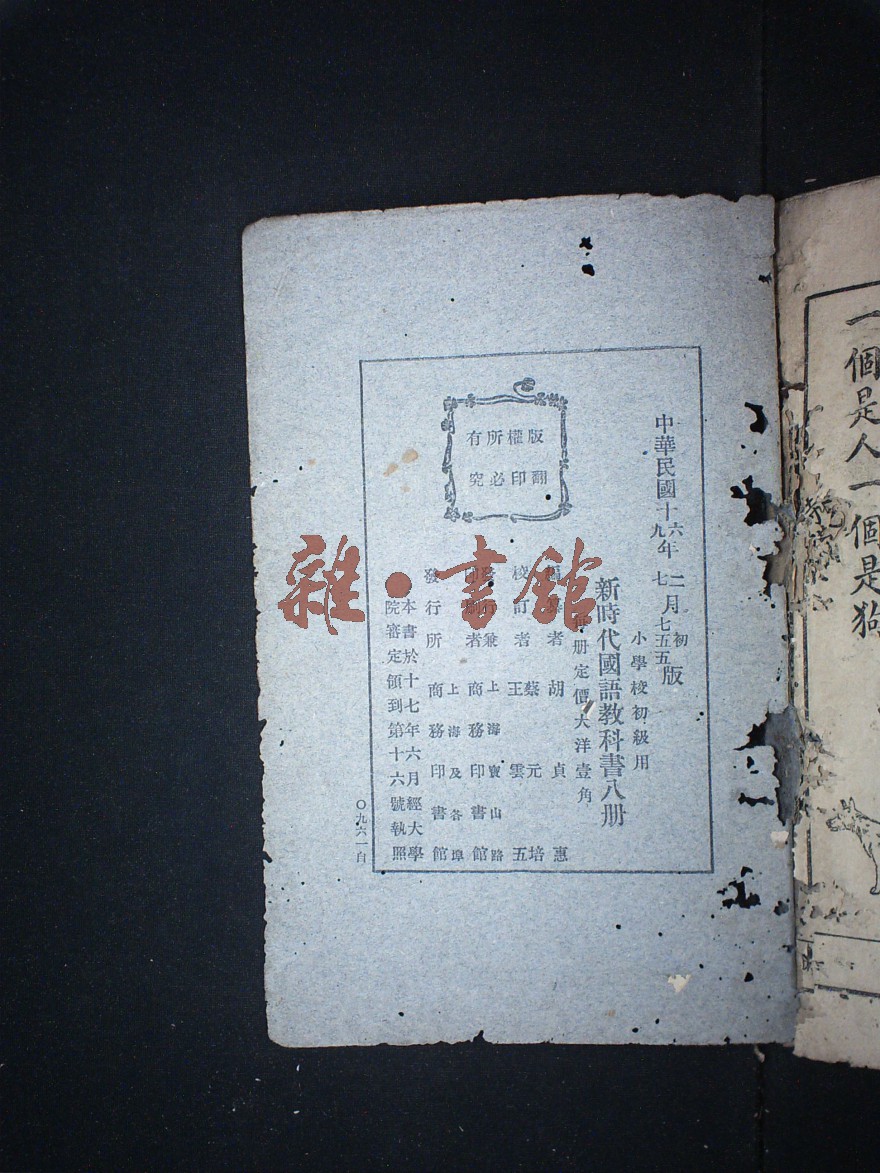 一個是人一個是狗
中華民國十六年二月初版
十九年七月七五五版
小學校初級用
新時代國語教科書八册
每册定價大洋壹角
版權所有
翻印必究
編纂者 胡貞惠
校訂者 蔡元培
王雲五
發行兼印刷者 上海寶山路
商務印書館
發行所 上海及各埠
商務印書館
本書於十七年六月經大學
院審定領到第十六號執照
〇九六一自
雜·書館